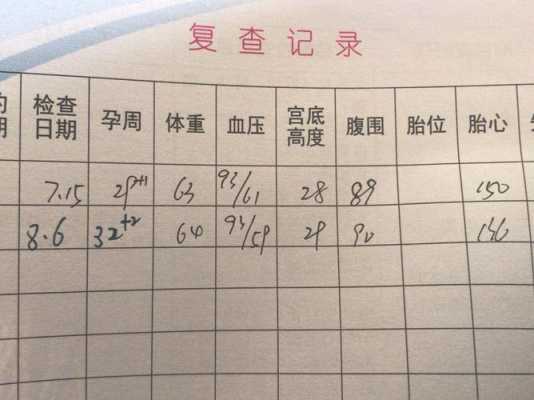 复查记录
检查日期 孕周 体重 血压 宫底高度 腹围 胎位 胎心
7.15 29+1 63 93/61 28 89 150
8.6 32+2 64 93/59 29 90 146